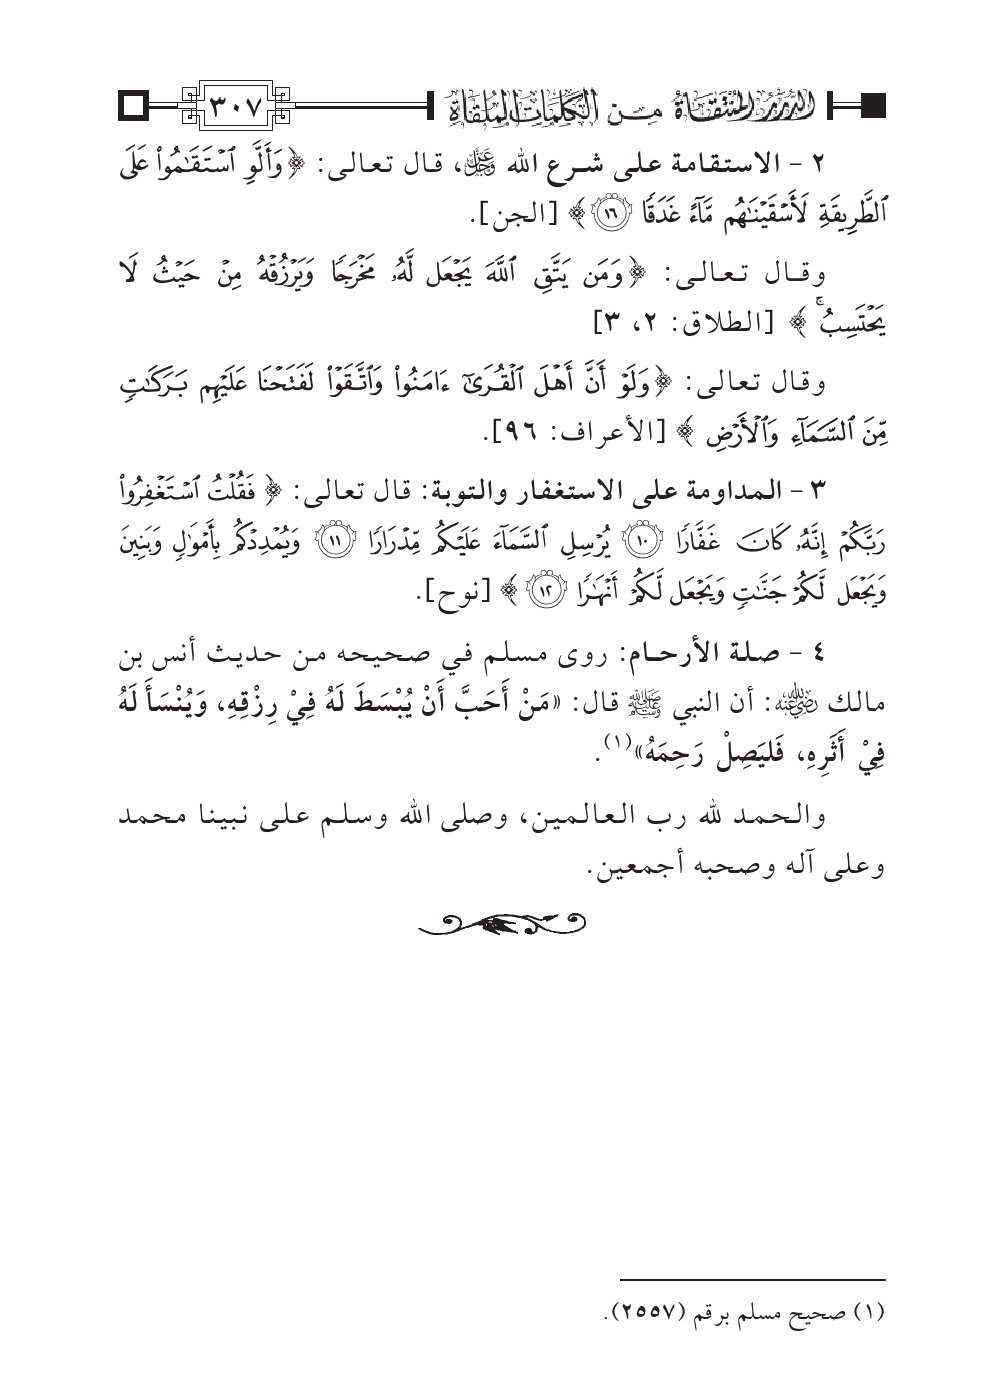 الدرر المنتقاة من الكلمات الملقاة
٣٠٧
٢ - الاستقامة على شرع الله ﷿، قال تعالى: ﴿وَأَلَّوِ ٱسْتَقَٰمُوا۟ عَلَى
ٱلطَّرِيقَةِ لَأَسْقَيْنَٰهُم مَّآءً غَدَقًا ١٦﴾ [الجن].
وقال تعالى: ﴿وَمَن يَتَّقِ ٱللَّهَ يَجْعَل لَّهُۥ مَخْرَجًا وَيَرْزُقْهُ مِنْ حَيْثُ لَا
يَحْتَسِبُ ۚ﴾ [الطلاق: ٢، ٣]
وقال تعالى: ﴿وَلَوْ أَنَّ أَهْلَ ٱلْقُرَىٰٓ ءَامَنُوا۟ وَٱتَّقَوْا۟ لَفَتَحْنَا عَلَيْهِم بَرَكَٰتٍ
مِّنَ ٱلسَّمَآءِ وَٱلْأَرْضِ﴾ [الأعراف: ٩٦].
٣ - المداومة على الاستغفار والتوبة: قال تعالى: ﴿فَقُلْتُ ٱسْتَغْفِرُوا۟
رَبَّكُمْ إِنَّهُۥ كَانَ غَفَّارًا ١٠ يُرْسِلِ ٱلسَّمَآءَ عَلَيْكُم مِّدْرَارًا ١١ وَيُمْدِدْكُم بِأَمْوَٰلٍ وَبَنِينَ
وَيَجْعَل لَّكُمْ جَنَّٰتٍ وَيَجْعَل لَّكُمْ أَنْهَٰرًا ١٢﴾ [نوح].
٤ - صلة الأرحام: روى مسلم في صحيحه من حديث أنس بن
مالك رضي الله عنه: أن النبي ﷺ قال: «مَنْ أَحَبَّ أَنْ يُبْسَطَ لَهُ فِيْ رِزْقِهِ، وَيُنْسَأَ لَهُ
فِيْ أَثَرِهِ، فَليَصِلْ رَحِمَهُ»(١).
والحمد لله رب العالمين، وصلى الله وسلم على نبينا محمد
وعلى آله وصحبه أجمعين.
(١) صحيح مسلم برقم (٢٥٥٧).